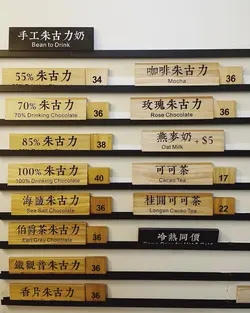 手工朱古力奶
Bean to Drink
55% 朱古力
55% Drinking Chocolate
34
70% 朱古力
70% Drinking Chocolate
36
85% 朱古力
85% Drinking Chocolate
38
100% 朱古力
100% Drinking Chocolate
40
海鹽朱古力
Sea Salt Chocolate
36
伯爵茶朱古力
Earl Gray Chocolate
36
鐵觀音朱古力
36
香片朱古力
36
咖啡朱古力
Mocha
36
玫瑰朱古力
Rose Chocolate
36
燕麥奶 +$5
Oat Milk
可可茶
Cacao Tea
17
桂圓可可茶
Longan Cacao Tea
22
冷熱同價